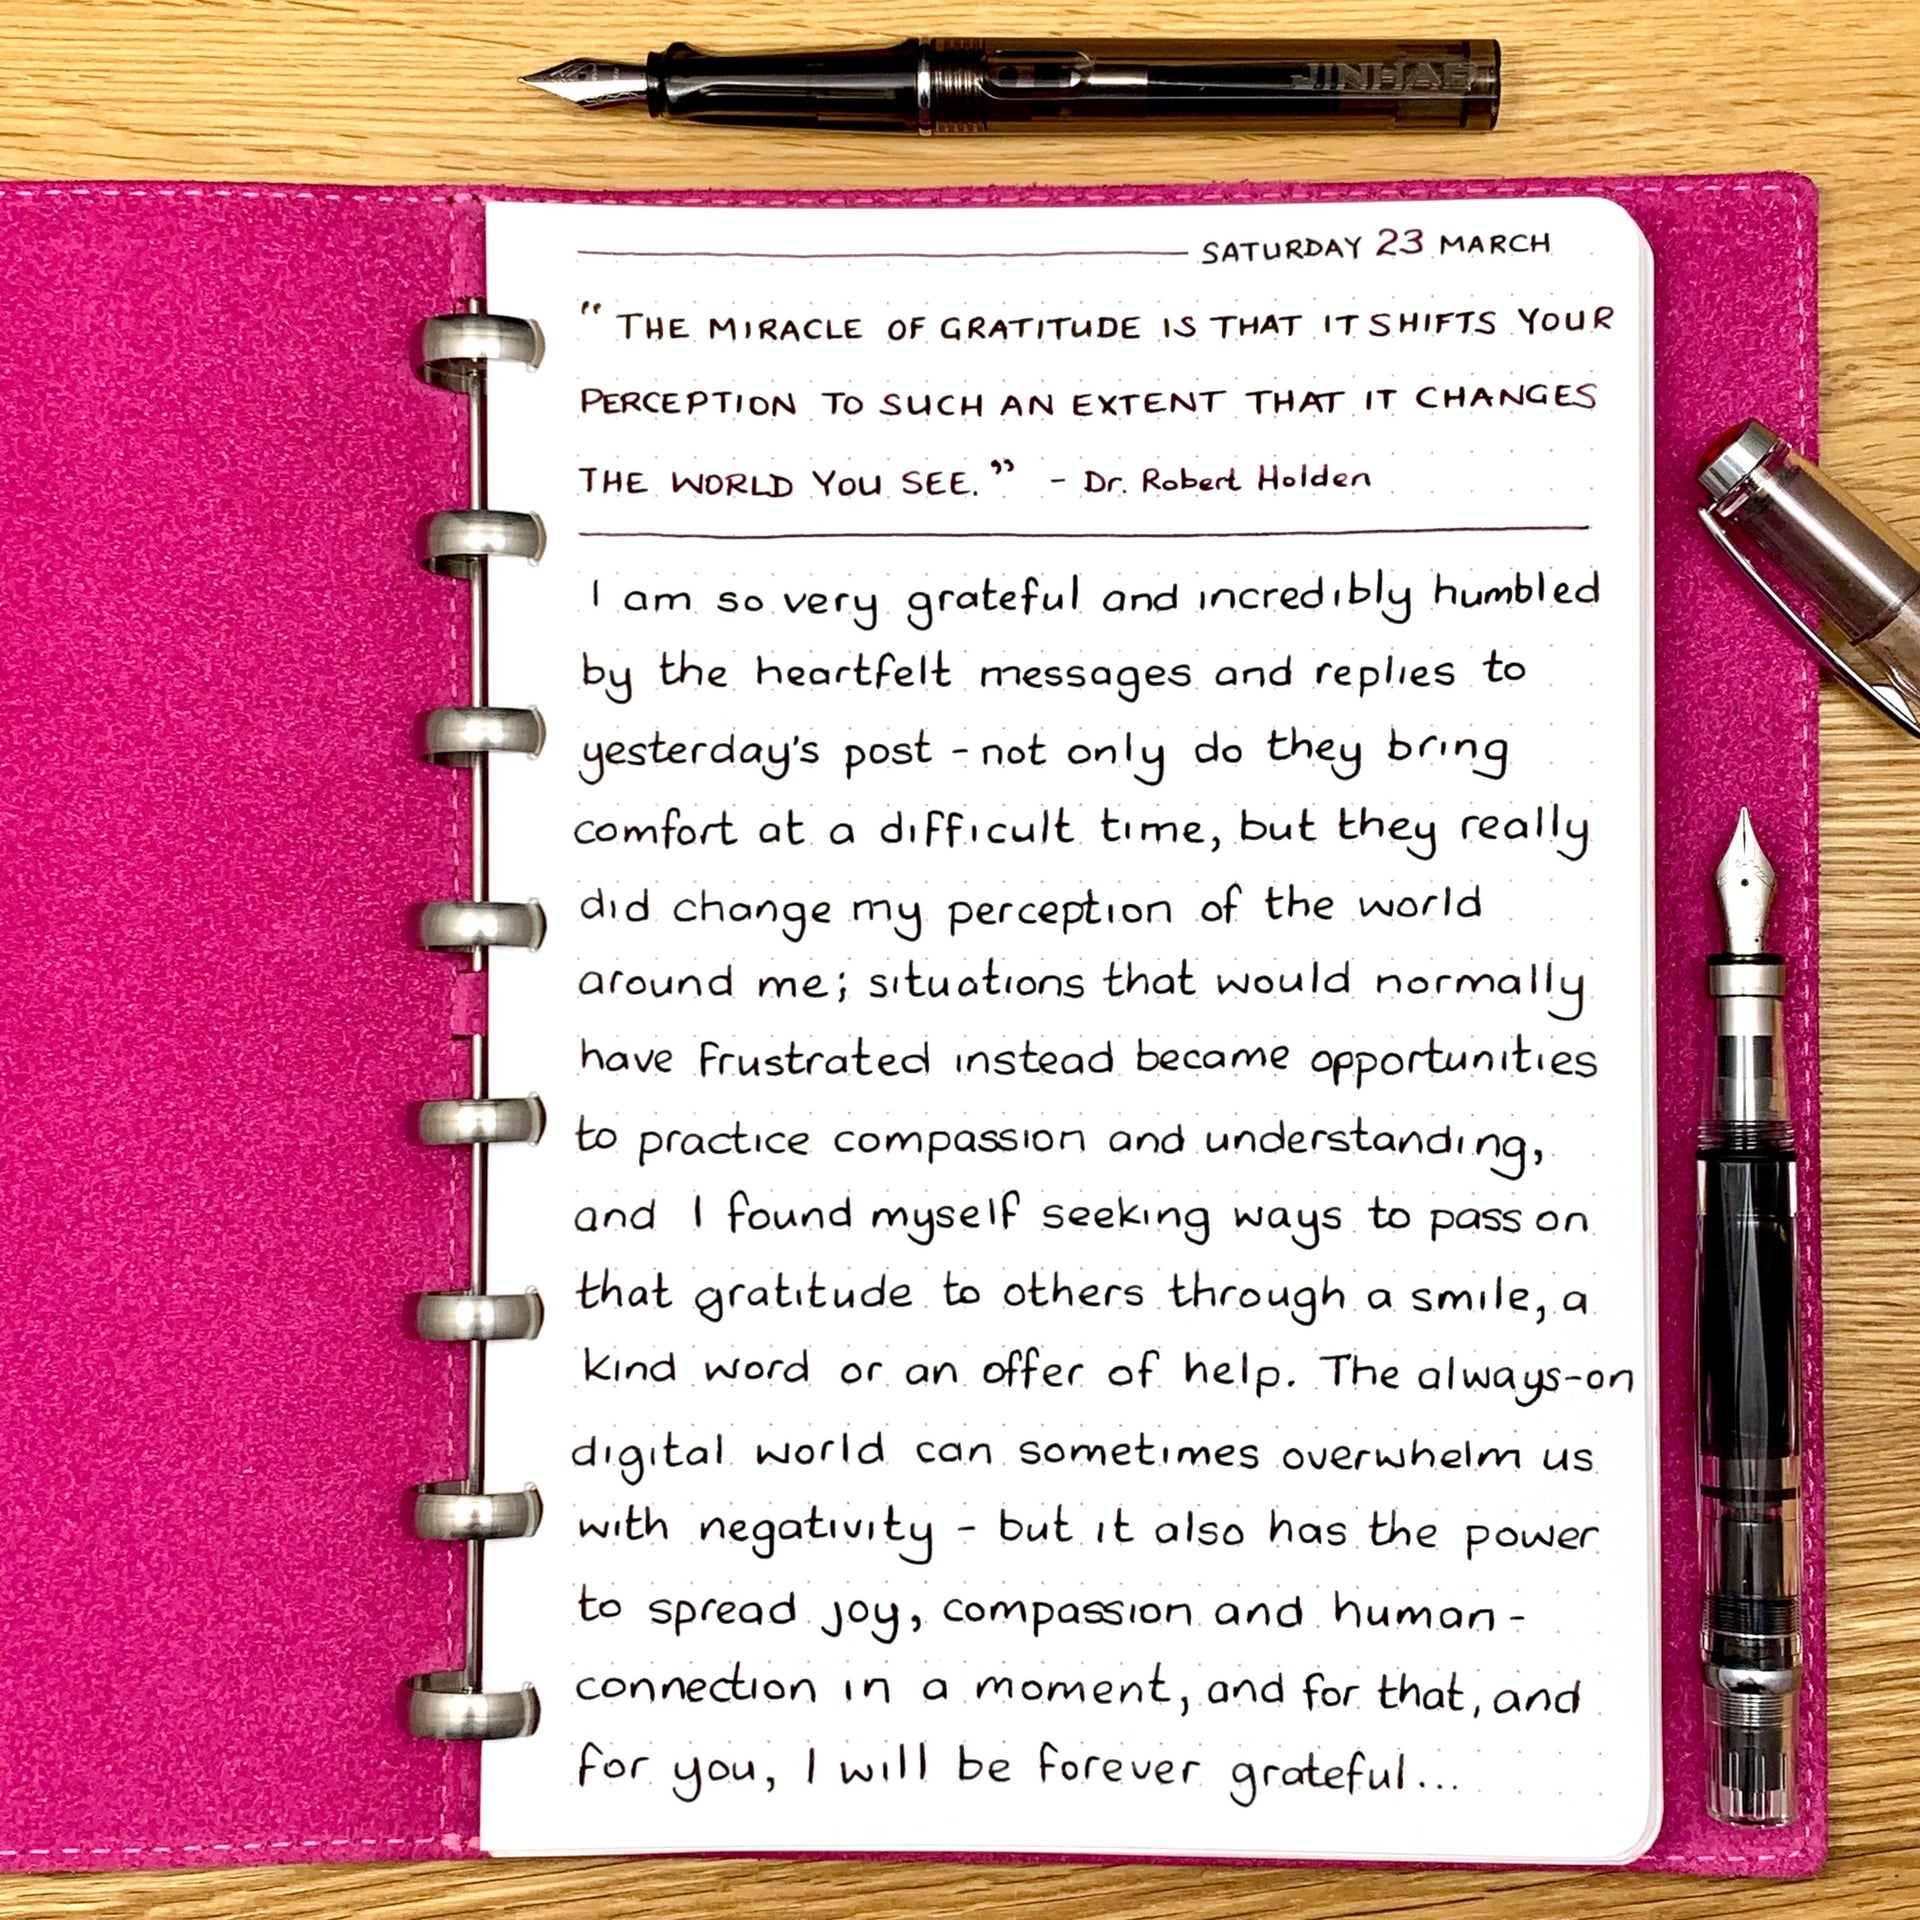 JINHAO
SATURDAY 23 MARCH
"THE MIRACLE OF GRATITUDE IS THAT IT SHIFTS YOUR
PERCEPTION TO SUCH AN EXTENT THAT IT CHANGES
THE WORLD YOU SEE." - Dr. Robert Holden
I am so very grateful and incredibly humbled
by the heartfelt messages and replies to
yesterday's post - not only do they bring
comfort at a difficult time, but they really
did change my perception of the world
around me; situations that would normally
have frustrated instead became opportunities
to practice compassion and understanding,
and I found myself seeking ways to pass on
that gratitude to others through a smile, a
kind word or an offer of help. The always-on
digital world can sometimes overwhelm us
with negativity - but it also has the power
to spread joy, compassion and human-
connection in a moment, and for that, and
for you, I will be forever grateful...